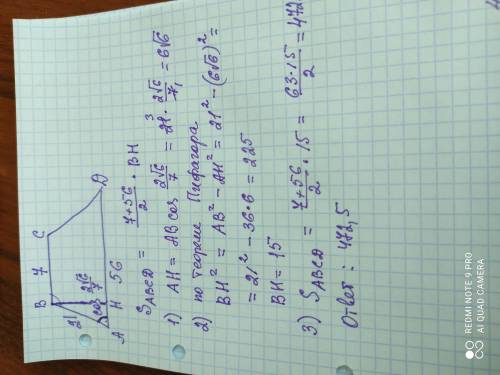 B 7 C
21
cos 2√6/7
A H 56 D
S_ABCD = (7+56)/2 · BH
1) AH = AB cos 2√6/7 = 21³ · 2√6/7₁ = 6√6
2) по теореме Пифагора
BH² = AB² - AH² = 21² - (6√6)² =
= 21² - 36·6 = 225
BH = 15
3) S_ABCD = (7+56)/2 · 15 = (63·15)/2 = 472
Ответ: 472,5
REDMI NOTE 9 PRO
AI QUAD CAMERA